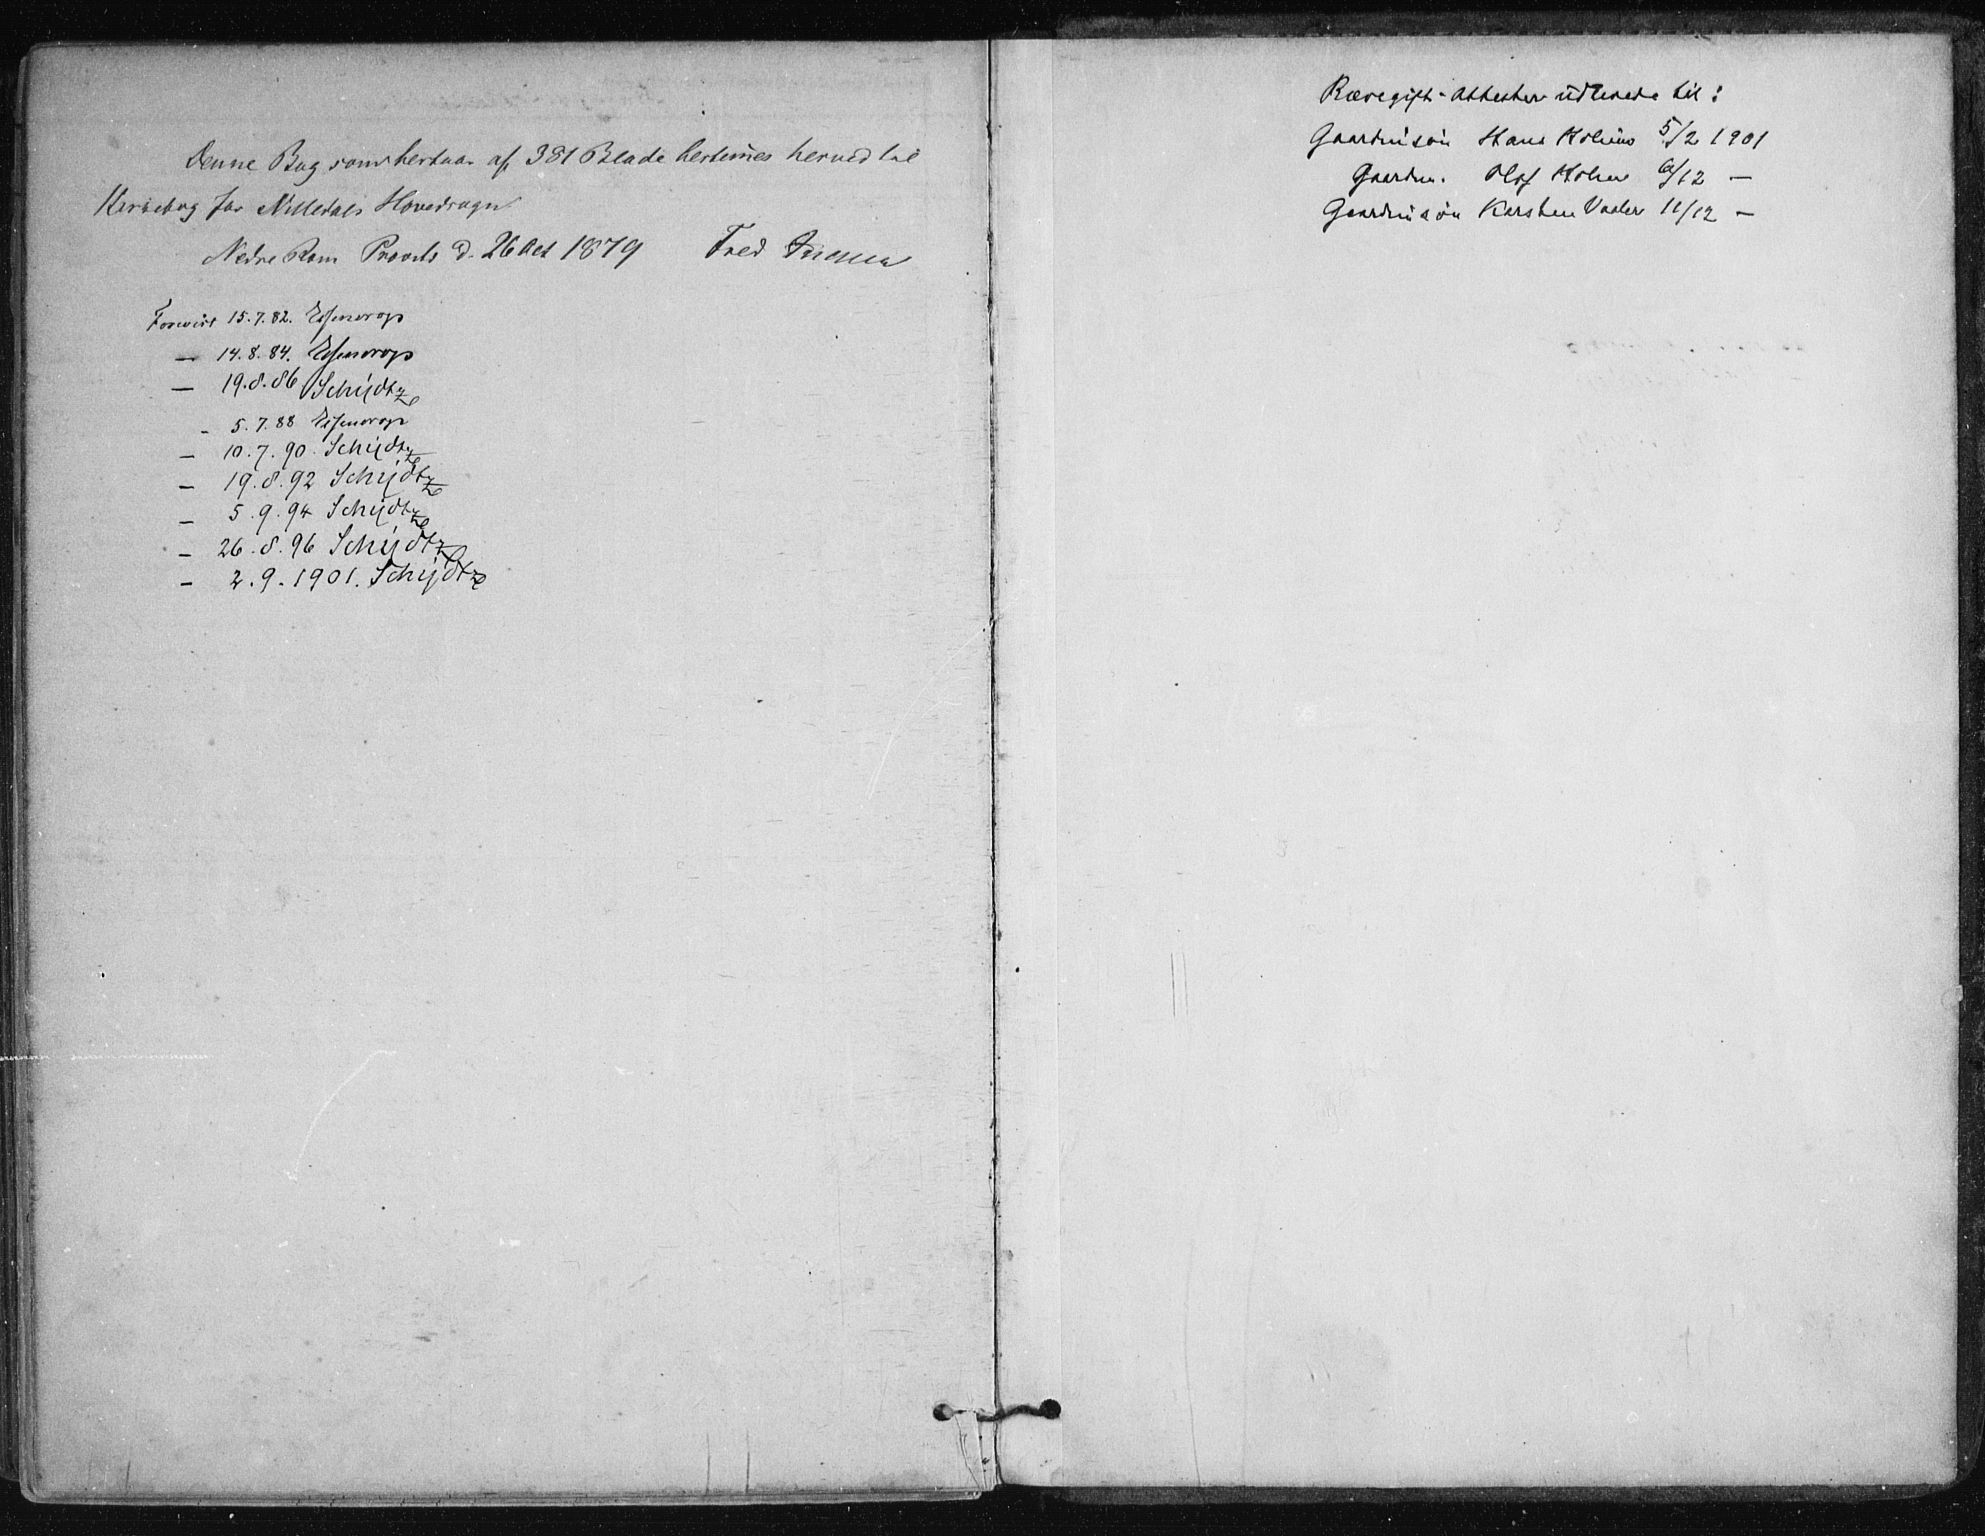 Denne Bog som bestaar af 381 Blade bestemes herved til
Kirkebog for Nittedals Hovedsogn
Nedre Rom Provsti d. 26 Oct 1879 Fred
Forevist 15.7.82. Essendrop
— 14.8.84. Essendrop
— 19.8.86 Schijøtz
- 5.7.88 Essendrop
— 10.7.90. Schijøtz
— 19.8.92 Schijøtz
— 5.9.94 Schijøtz
— 26.8.96 Schijøtz
— 2.9.1901. Schijøtz
Rævegift-Attester udstedte til:
Gaardmsøn Hans Holm 5/2 1901
Gaardm. Olaf Holm /12 —
Gaardmsøn Karsten Vaaler 11/12 —